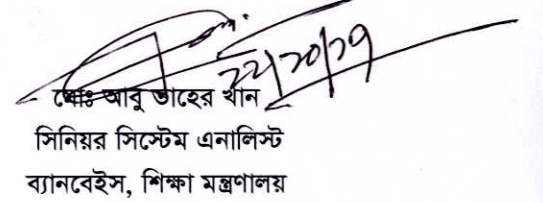 মোঃ আবু তাহের খান
সিনিয়র সিস্টেম এনালিস্ট
ব্যানবেইস, শিক্ষা মন্ত্রণালয়